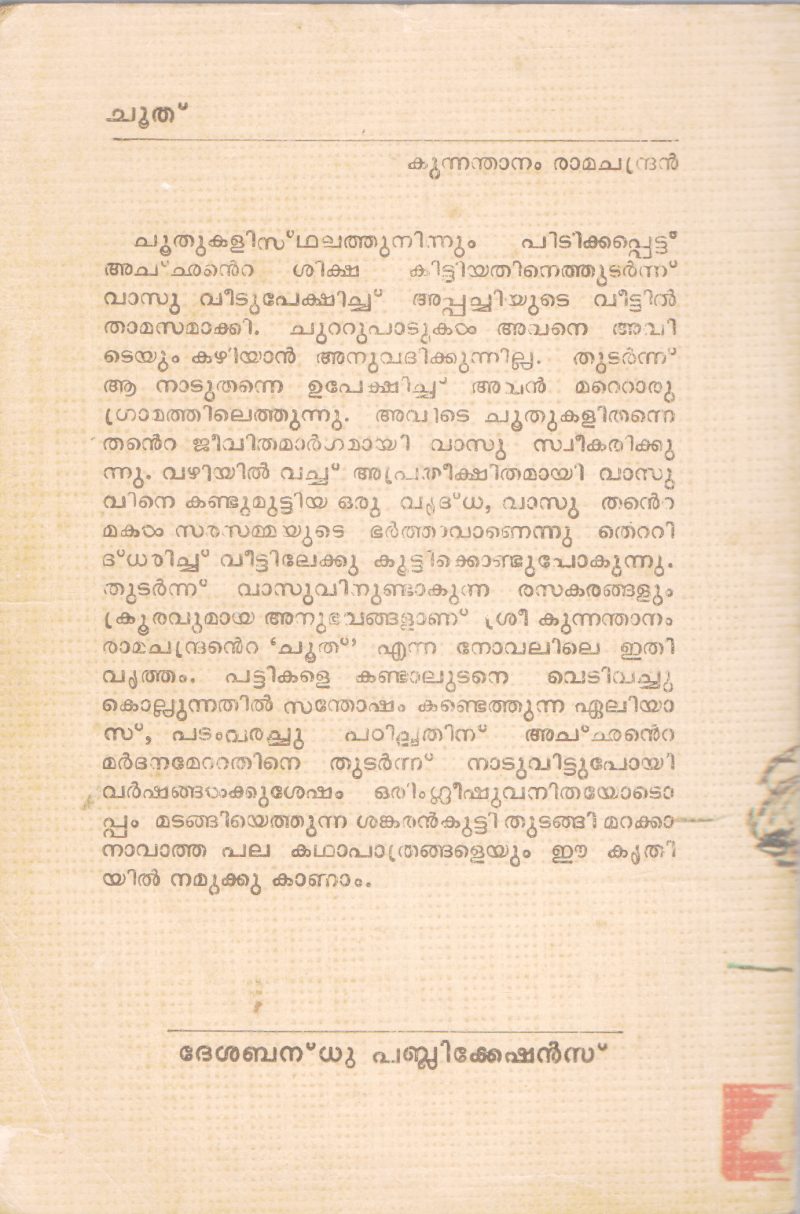 ചൂത്
കുന്നന്താനം രാമചന്ദ്രൻ
ചൂതുകളിസ്ഥലത്തുനിന്നും പിടിക്കപ്പെട്ട്
അച്ഛൻെറ ശിക്ഷ കിട്ടിയതിനെത്തുടർന്ന്
വാസു വീടുപേക്ഷിച്ച് അപ്പച്ചിയുടെ വീട്ടിൽ
താമസമാക്കി. ചുററുപാടുകൾ അവനെ അവി
ടെയും കഴിയാൻ അനുവദിക്കുന്നില്ല. തുടർന്ന്
ആ നാടുതന്നെ ഉപേക്ഷിച്ച് അവൻ മറെറാരു
ഗ്രാമത്തിലെത്തുന്നു. അവിടെ ചൂതുകളിതന്നെ
തൻെറ ജീവിതമാർഗമായി വാസു സ്വീകരിക്കു
ന്നു. വഴിയിൽ വച്ച് അപ്രതീക്ഷിതമായി വാസു
വിനെ കണ്ടുമുട്ടിയ ഒരു വൃദ്ധ, വാസു തൻെറ
മകൾ സരസമ്മയുടെ ഭർത്താവാണെന്നു തെററി
ദ്ധരിച്ച് വീട്ടിലേക്കു കൂട്ടിക്കൊണ്ടുപോകുന്നു.
തുടർന്ന് വാസുവിനുണ്ടാകുന്ന രസകരങ്ങളും
ക്രൂരവുമായ അനുഭവങ്ങളാണ് ശ്രീ കുന്നന്താനം
രാമചന്ദ്രൻെറ ‘ചൂത്’ എന്ന നോവലിലെ ഇതി
വൃത്തം. പട്ടികളെ കണ്ടാലുടനെ വെടിവച്ചു
കൊല്ലുന്നതിൽ സന്തോഷം കണ്ടെത്തുന്ന ഏലിയാ
സ്, പടംവരച്ചു പഠിച്ചതിന് അച്ഛൻെറ
മർദനമേററതിനെ തുടർന്ന് നാടുവിട്ടുപോയി
വർഷങ്ങൾക്കുശേഷം ഒരിംഗ്ലീഷുവനിതയോടൊ
പ്പം മടങ്ങിയെത്തുന്ന ശങ്കരൻകുട്ടി തുടങ്ങി മറക്കാ
നാവാത്ത പല കഥാപാത്രങ്ങളെയും ഈ കൃതി
യിൽ നമുക്കു കാണാം.
ദേശബന്ധു പബ്ലിക്കേഷൻസ്